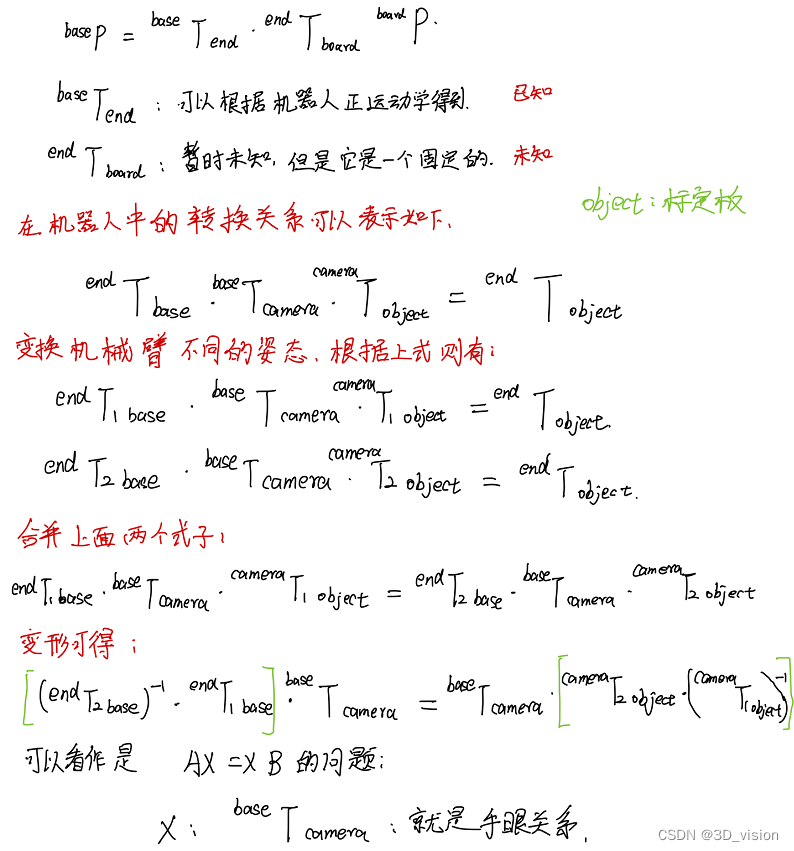 base P = base T end · end T board board P.
base T end : 可以根据机器人正运动学得到. 已知
end T board : 暂时未知, 但是它是一个固定的. 未知
object : 标定板
在机器人中的转换关系可以表示如下.
end T base · base T camera · camera T object = end T object
变换机械臂不同的姿态. 根据上式则有:
end T1 base · base T camera · camera T1 object = end T object.
end T2 base · base T camera · camera T2 object = end T object.
合并上面两个式子:
end T1 base · base T camera · camera T1 object = end T2 base · base T camera · camera T2 object
变形可得 :
[(end T2 base)⁻¹ · end T1 base] · base T camera = base T camera · [camera T2 object · (camera T1 object)⁻¹]
可以看作是 AX = X B 的问题:
X : base T camera : 就是手眼关系.
CSDN @3D_vision